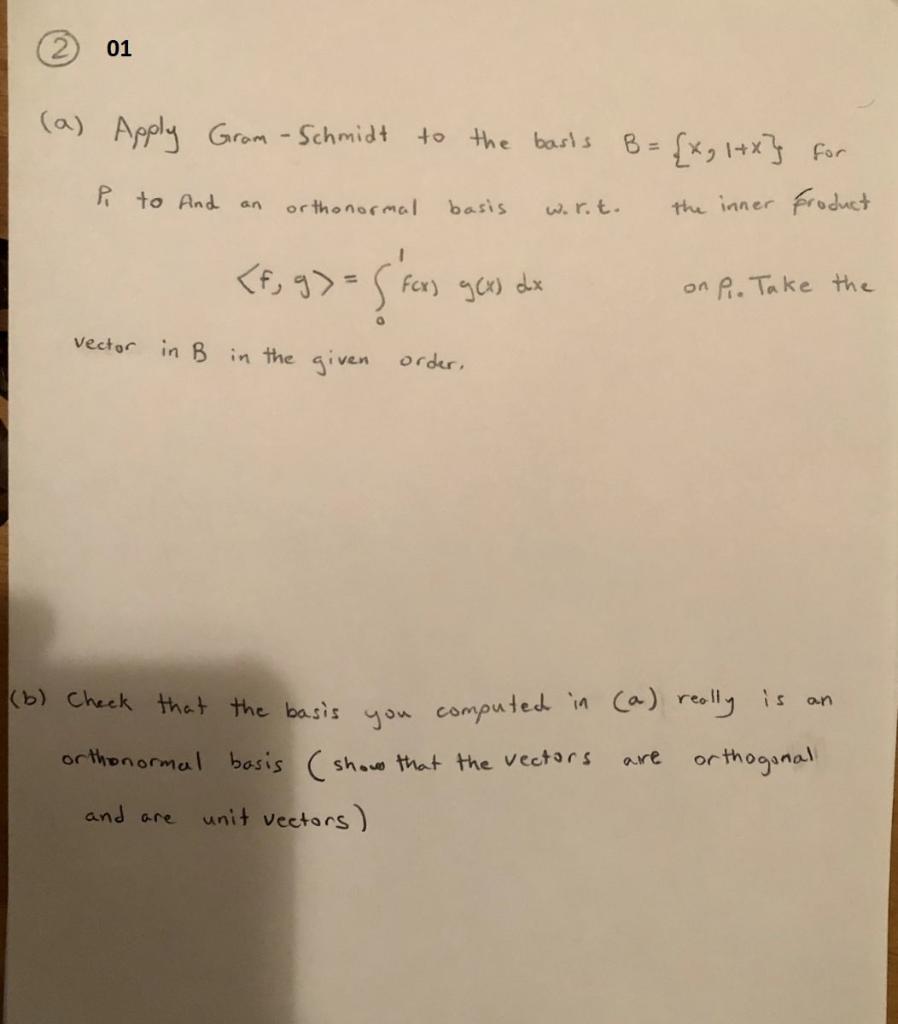 ② 01
(a) Apply Gram-Schmidt to the basis B = {x, 1+x} for
P₁ to find an orthonormal basis w.r.t. the inner product
<f, g> = ∫₀¹ f(x) g(x) dx on P₁. Take the
vector in B in the given order.
(b) Check that the basis you computed in (a) really is an
orthonormal basis (show that the vectors are orthogonal
and are unit vectors)